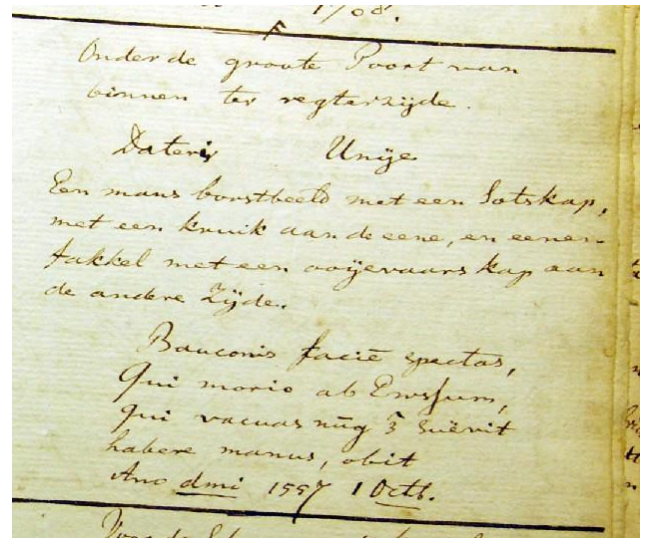 1708.
Onder de groote Poort van
binnen ter regterzijde.
Dateris Unije
Een mans borstbeeld met een Sotskap,
met een kruik aan de eene, en eenen
takkel met een ooijevaars kop aan
de andere Zijde.
Bauconis faciē spectas,
Qui morio ab Ewsum,
qui vacuas nūq̄ suëvit
habere manus, obit
Ano dmi 1557 1 Octb.